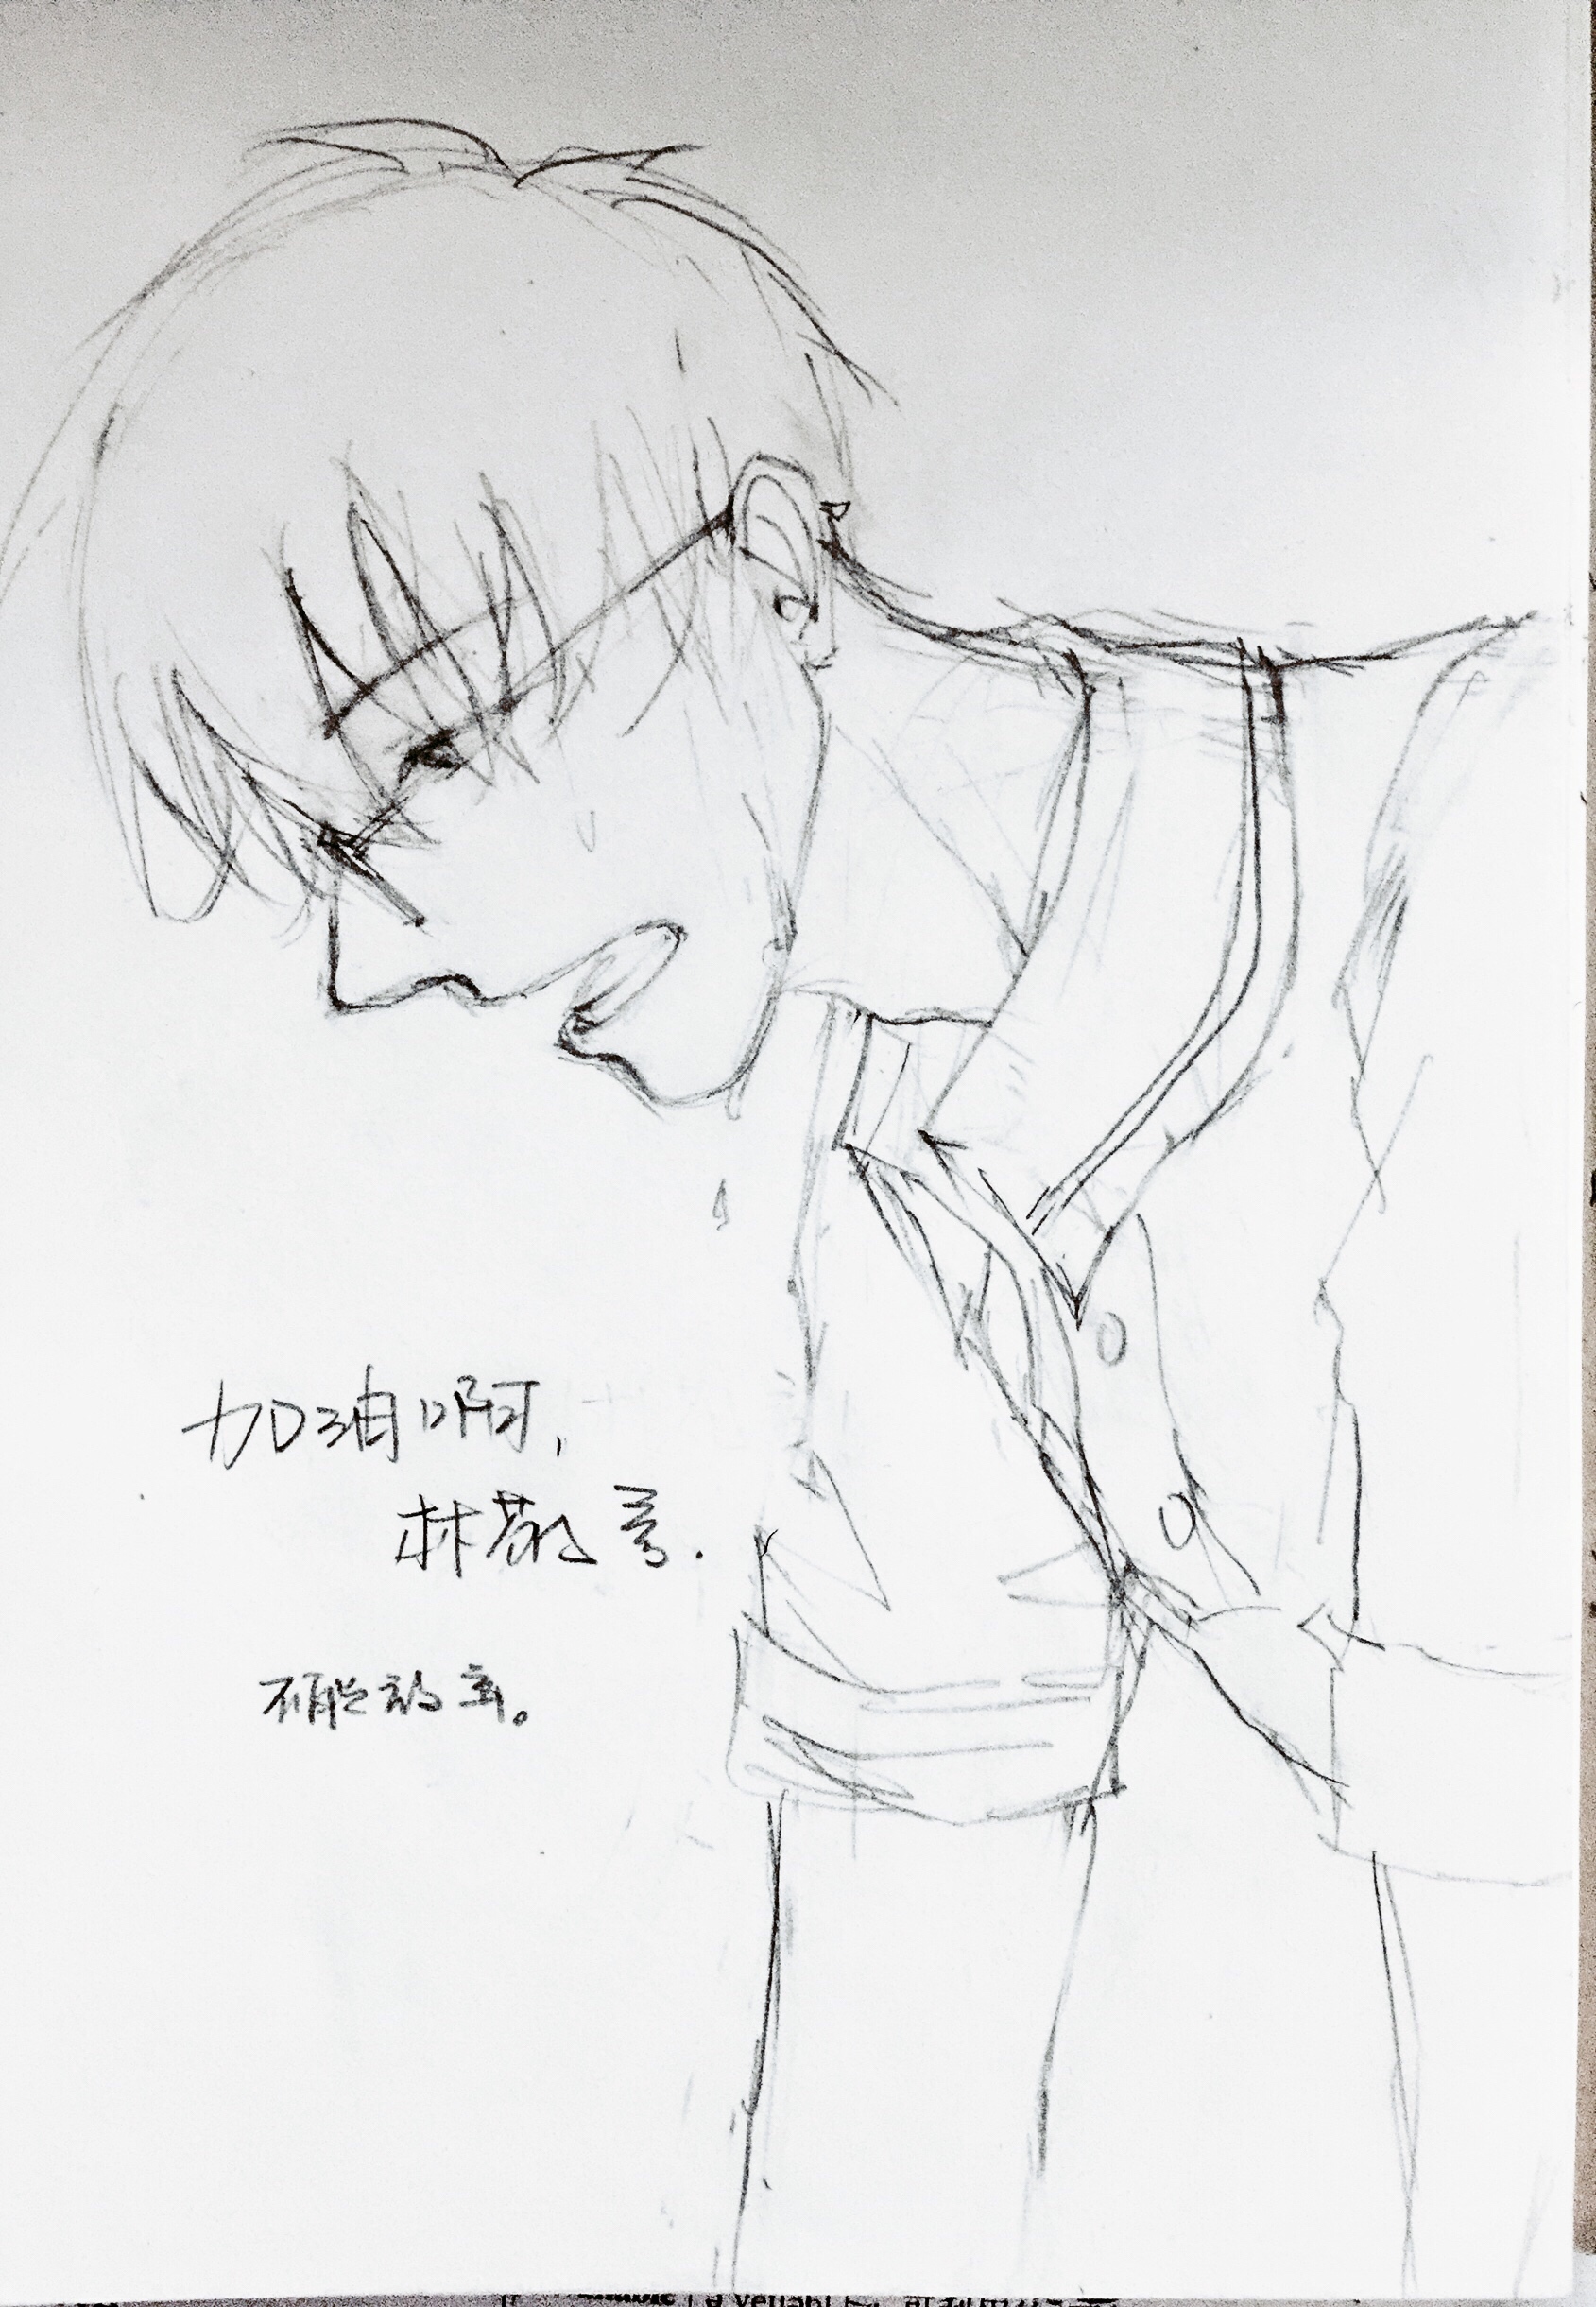 加油啊，
林敬言.
不能放弃。